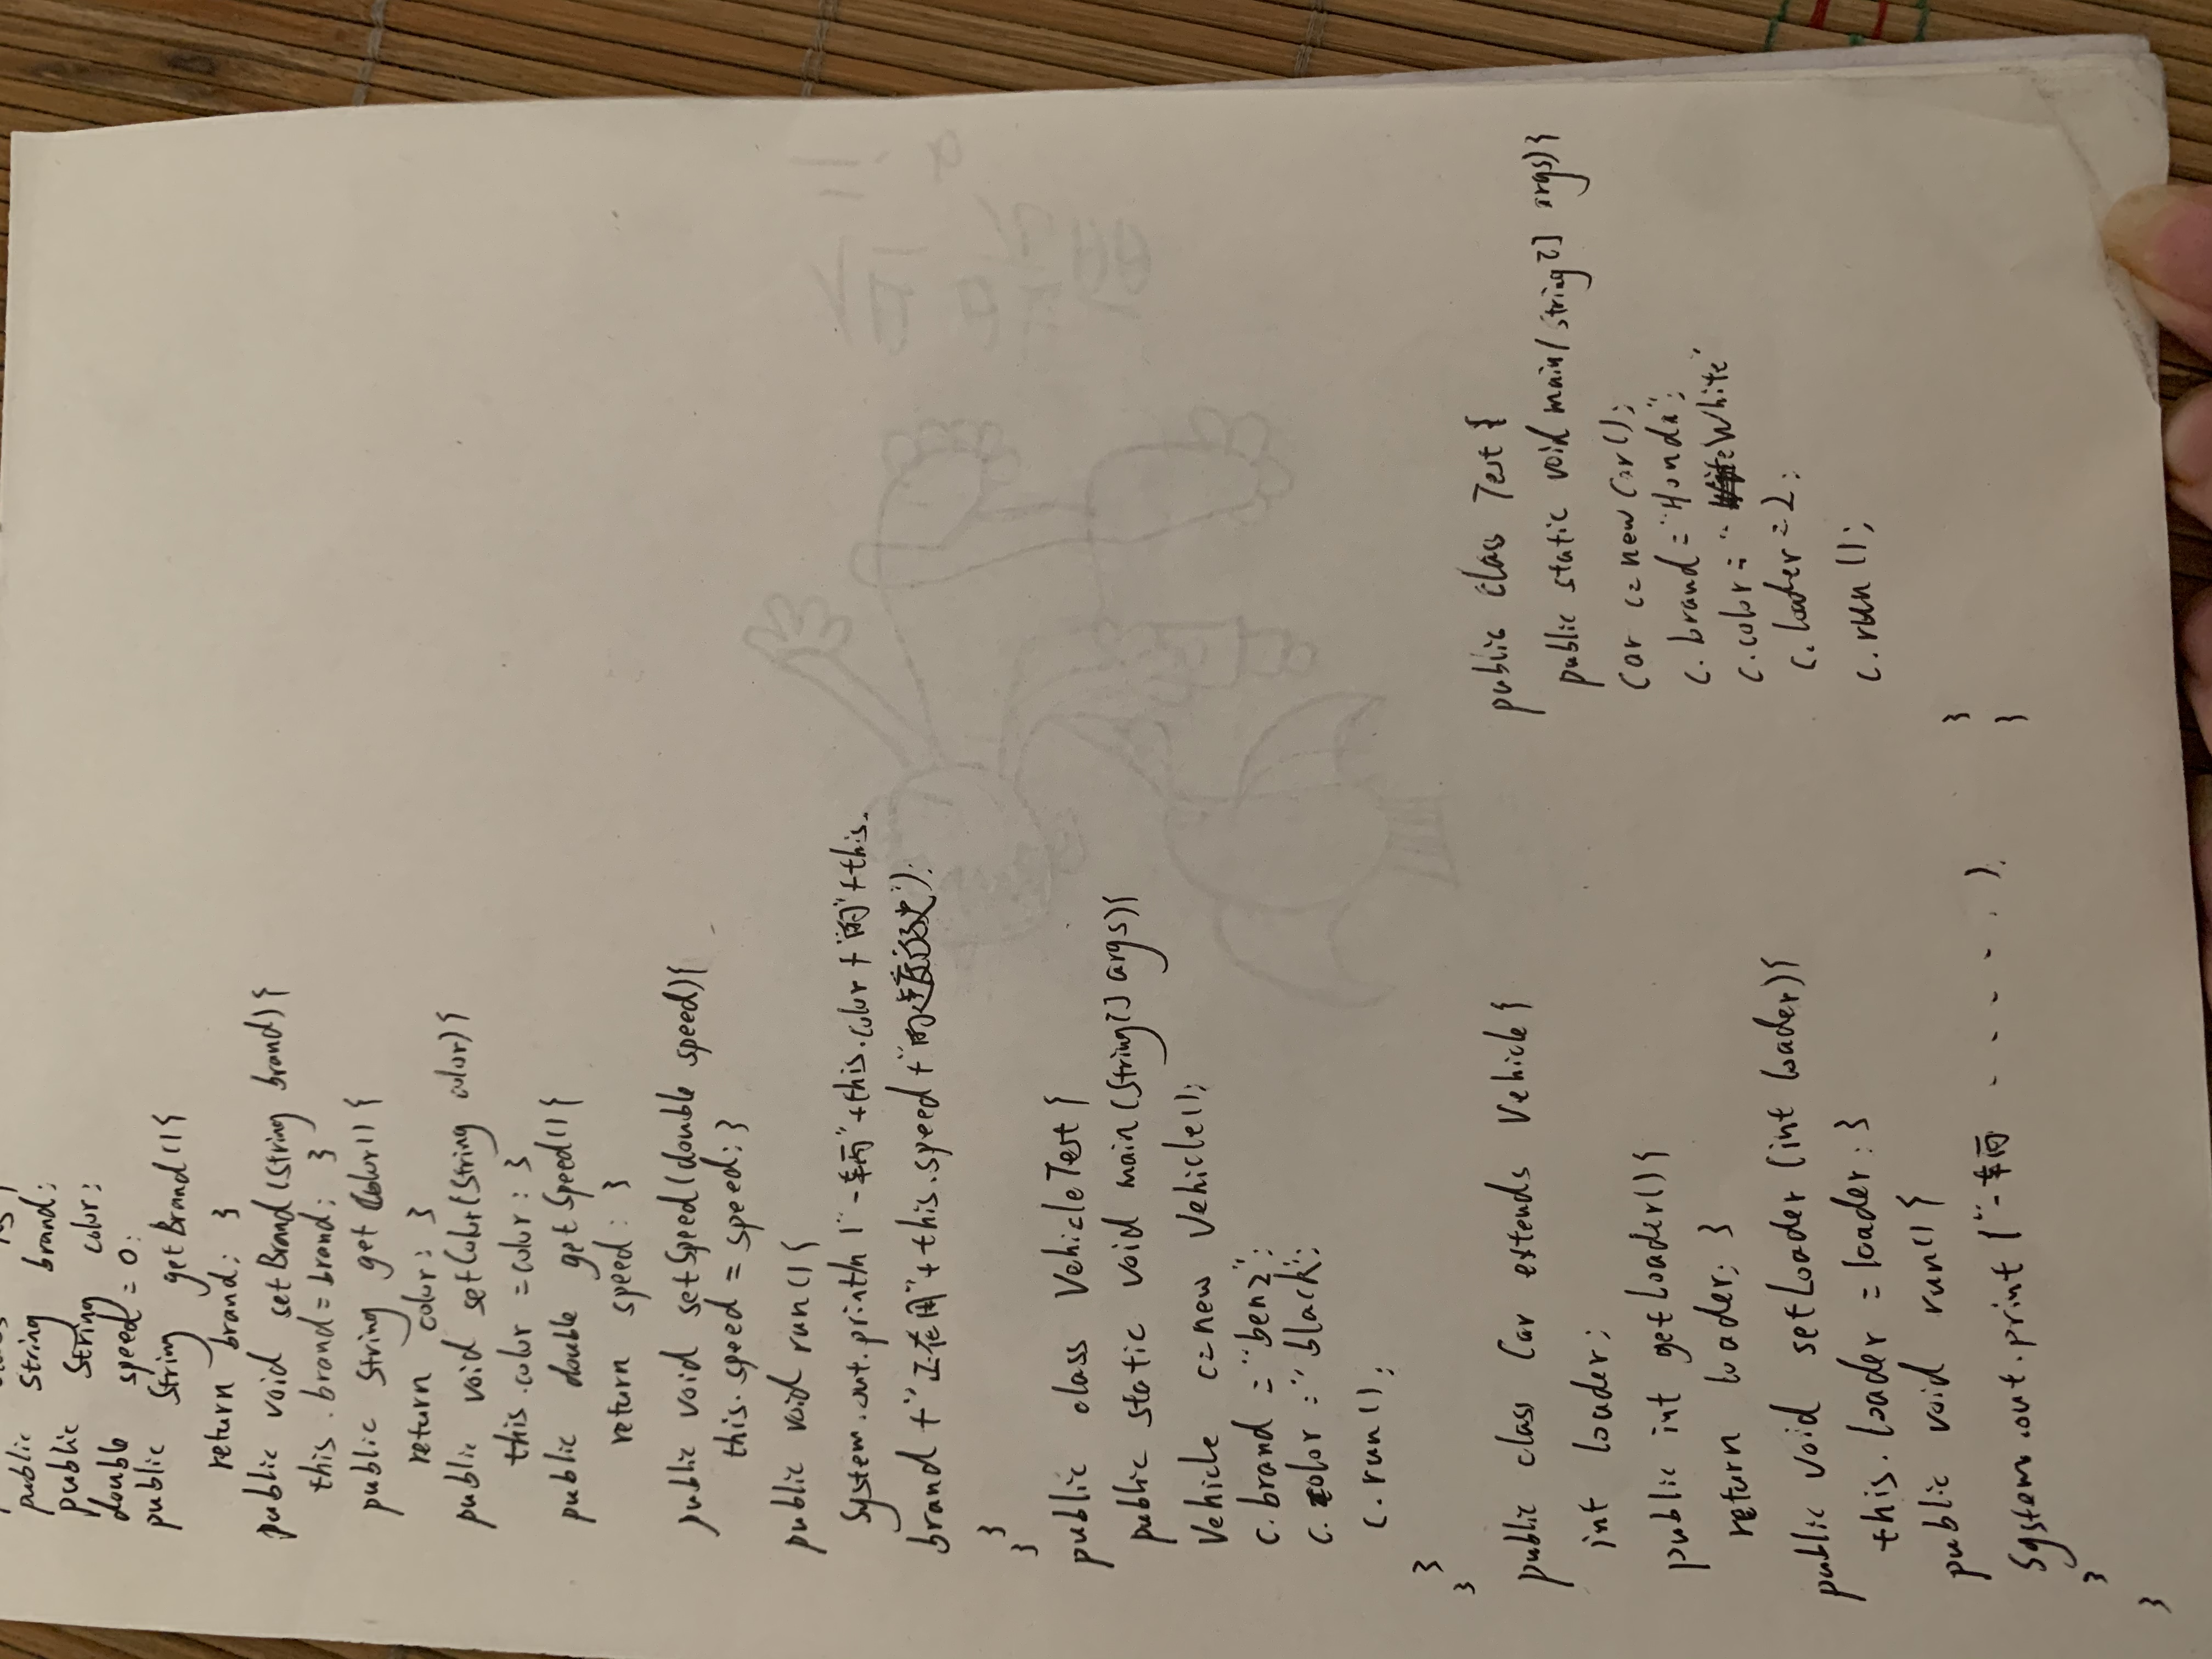 public string brand;
public string color;
double speed = 0;
public string getBrand(){
return brand; }
public void setBrand(string brand){
this.brand=brand; }
public string getColor(){
return color; }
public void setColor(string color){
this.color=color; }
public double getSpeed(){
return speed; }
public void setSpeed(double speed){
this.speed = speed; }
public void run(){
System.out.println("一车两"+this.color+"的"+this.
brand+"正在用"+this.speed+"的速度
}
}
public class VehicleTest{
public static void main(string[] args){
Vehicle c=new Vehicle();
c.brand="benz";
c.color="black";
c.run();
}
}
public class Car extends Vehicle{
int loader;
public int getLoader(){
return loader; }
public void setLoader(int loader){
this.loader=loader; }
public void run(){
System.out.print("一车两 ......);
}
}
public class Test{
public static void main(string[] args){
Car c=new Car();
c.brand="Honda";
c.color="White"
c.loader=2;
c.run();
}
}